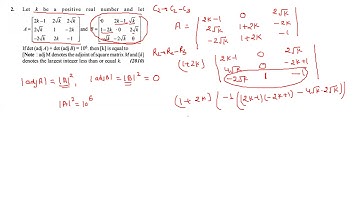 2. Let k be a positive real number and let
A = [2k-1 2√k 2√k
2√k 1 -2k
-2√k 2k -1] and B = [0 2k-1 √k
1-2k 0 2√k
-√k -2√k 0]
If det (adj A) + det (adj B) = 10⁶, then [k] is equal to
[Note : adj M denotes the adjoint of square matrix M and [k]
denotes the largest integer less than or equal k. (2010)
|adjA| = |A|² , |adjB| = |B|² = 0
|A|² = 10⁶
C₂ → C₂ - C₃
A = |2k-1 0 2√k
2√k 1+2k -2k
-2√k 1+2k -1|
R₂ → R₂ - R₃
(1+2k) |2k-1 0 2√k
4√k 0 -2k+1
-2√k 1 -1|
(1+2k) (-1((2k-1)(-2k+1) - 4√k·2√k)